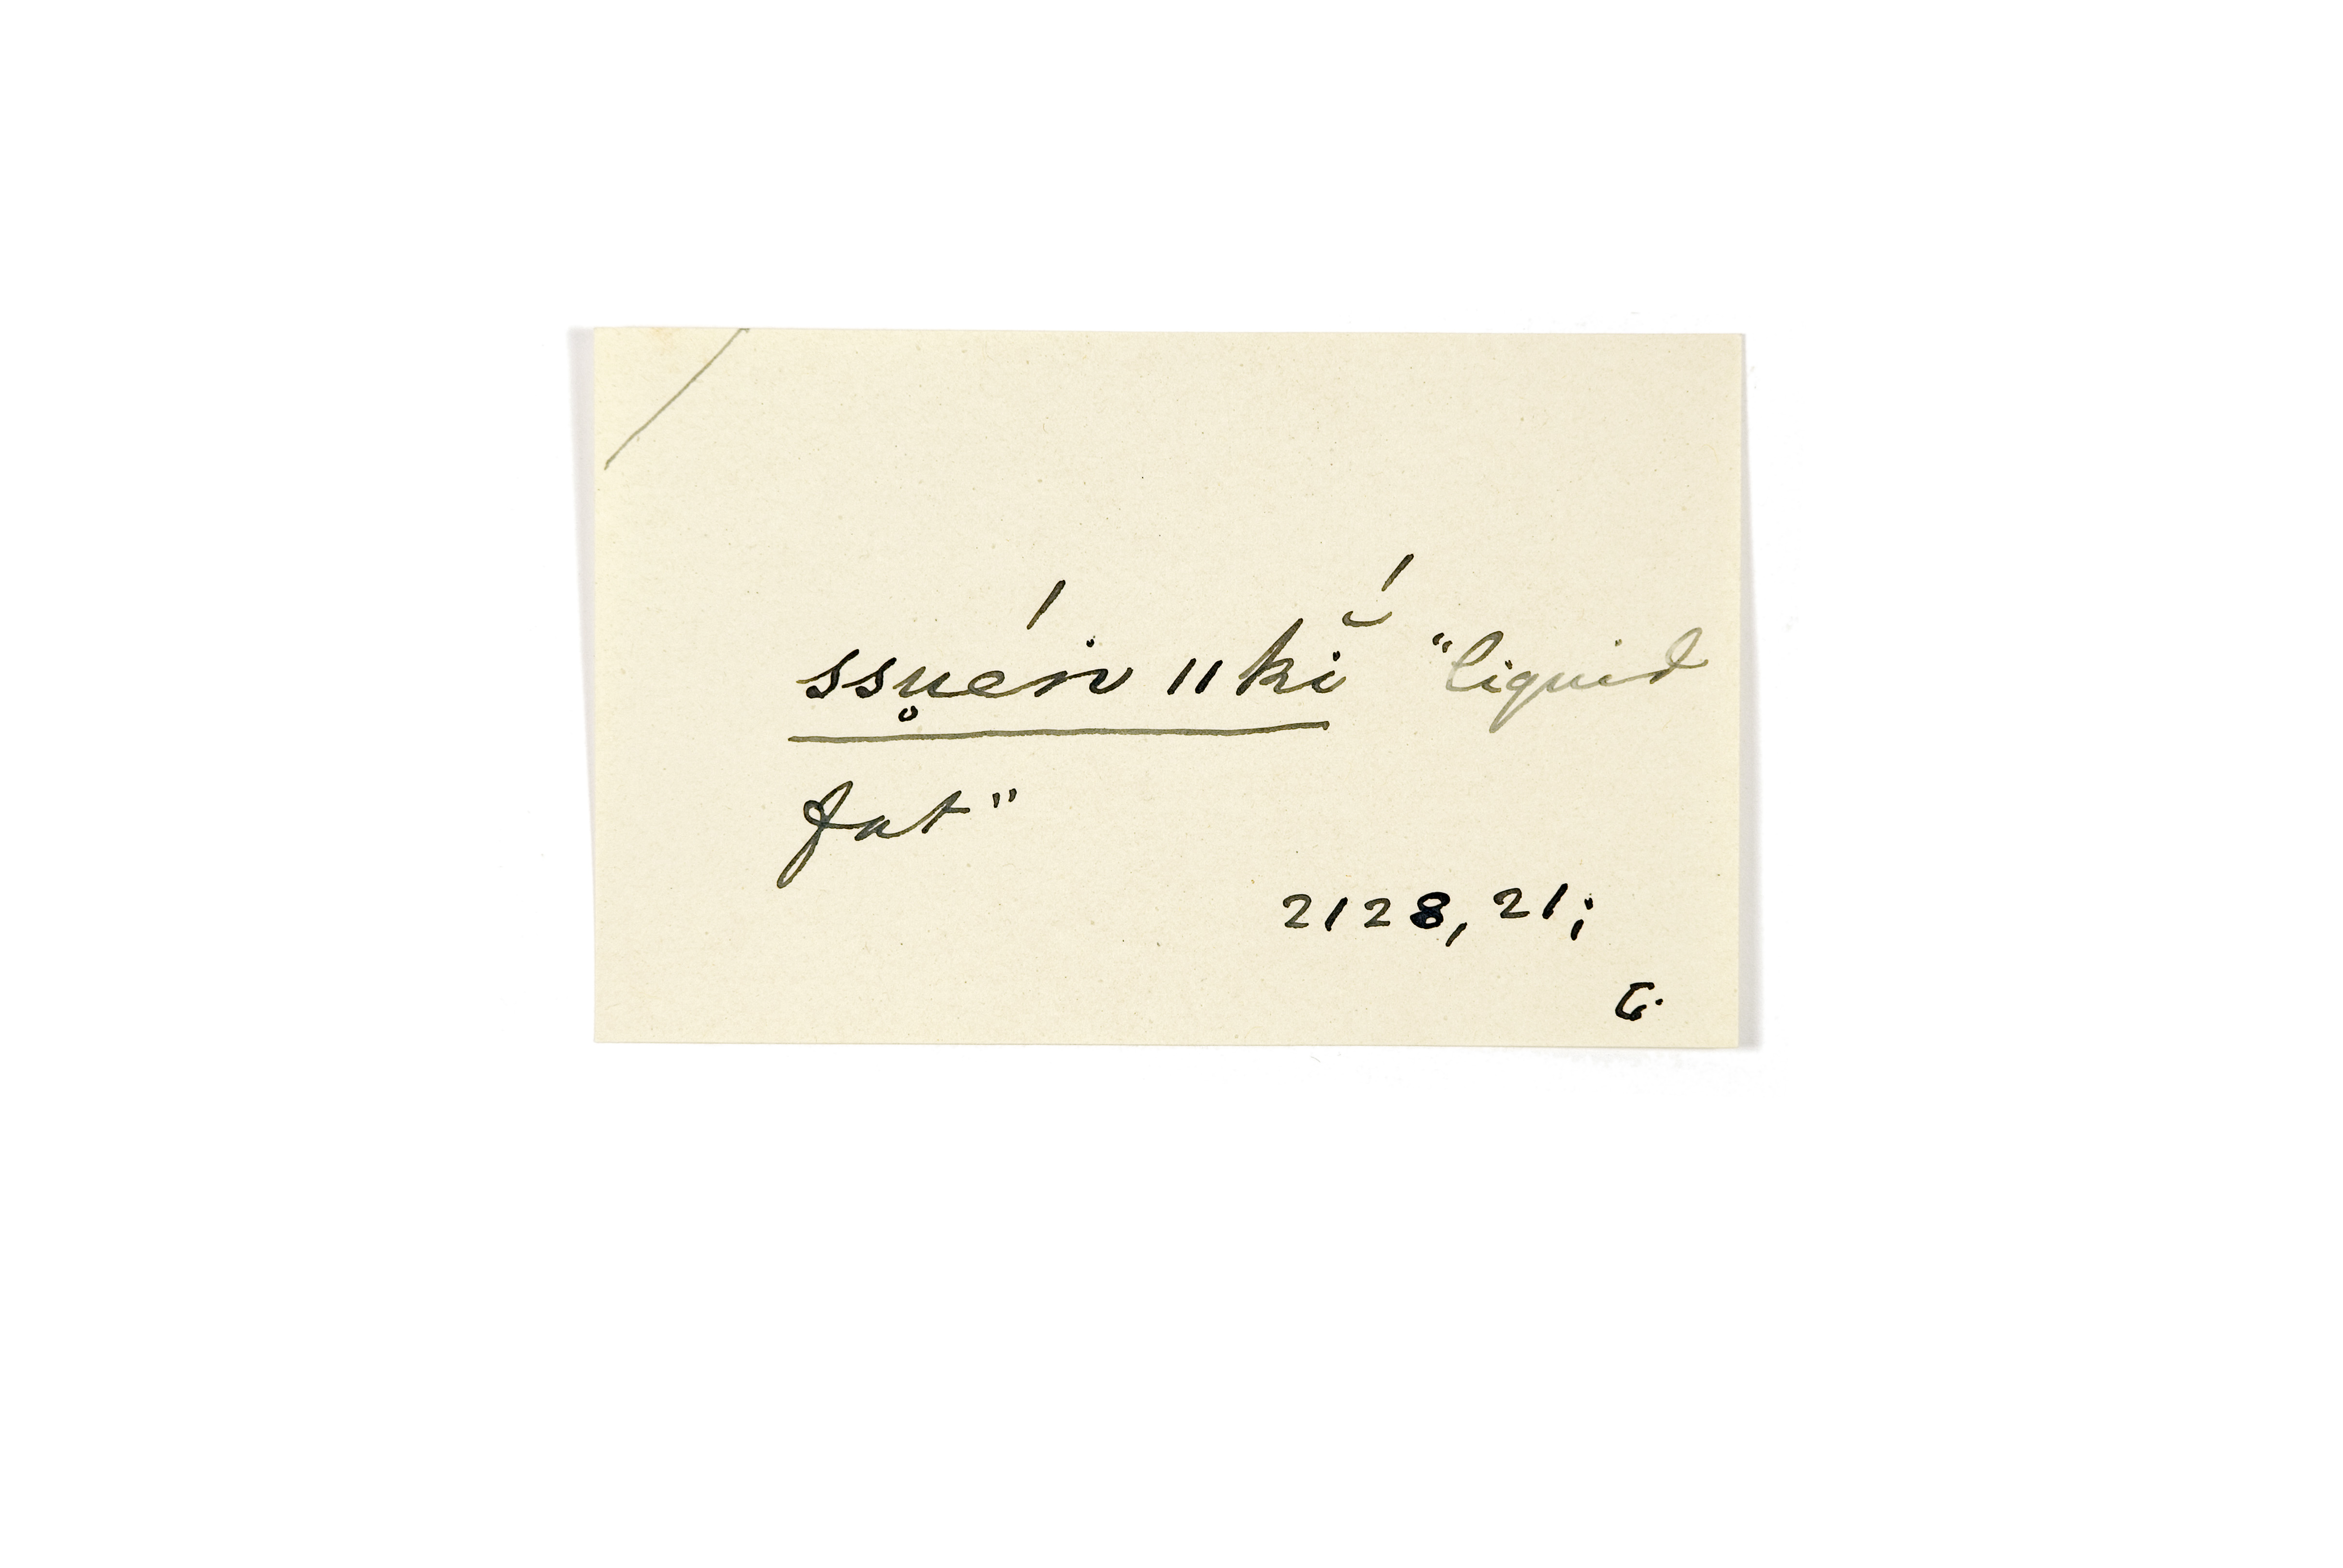 ssu̥éṅ ‖kí̆ "liquid
fat"
2128, 21;
G.